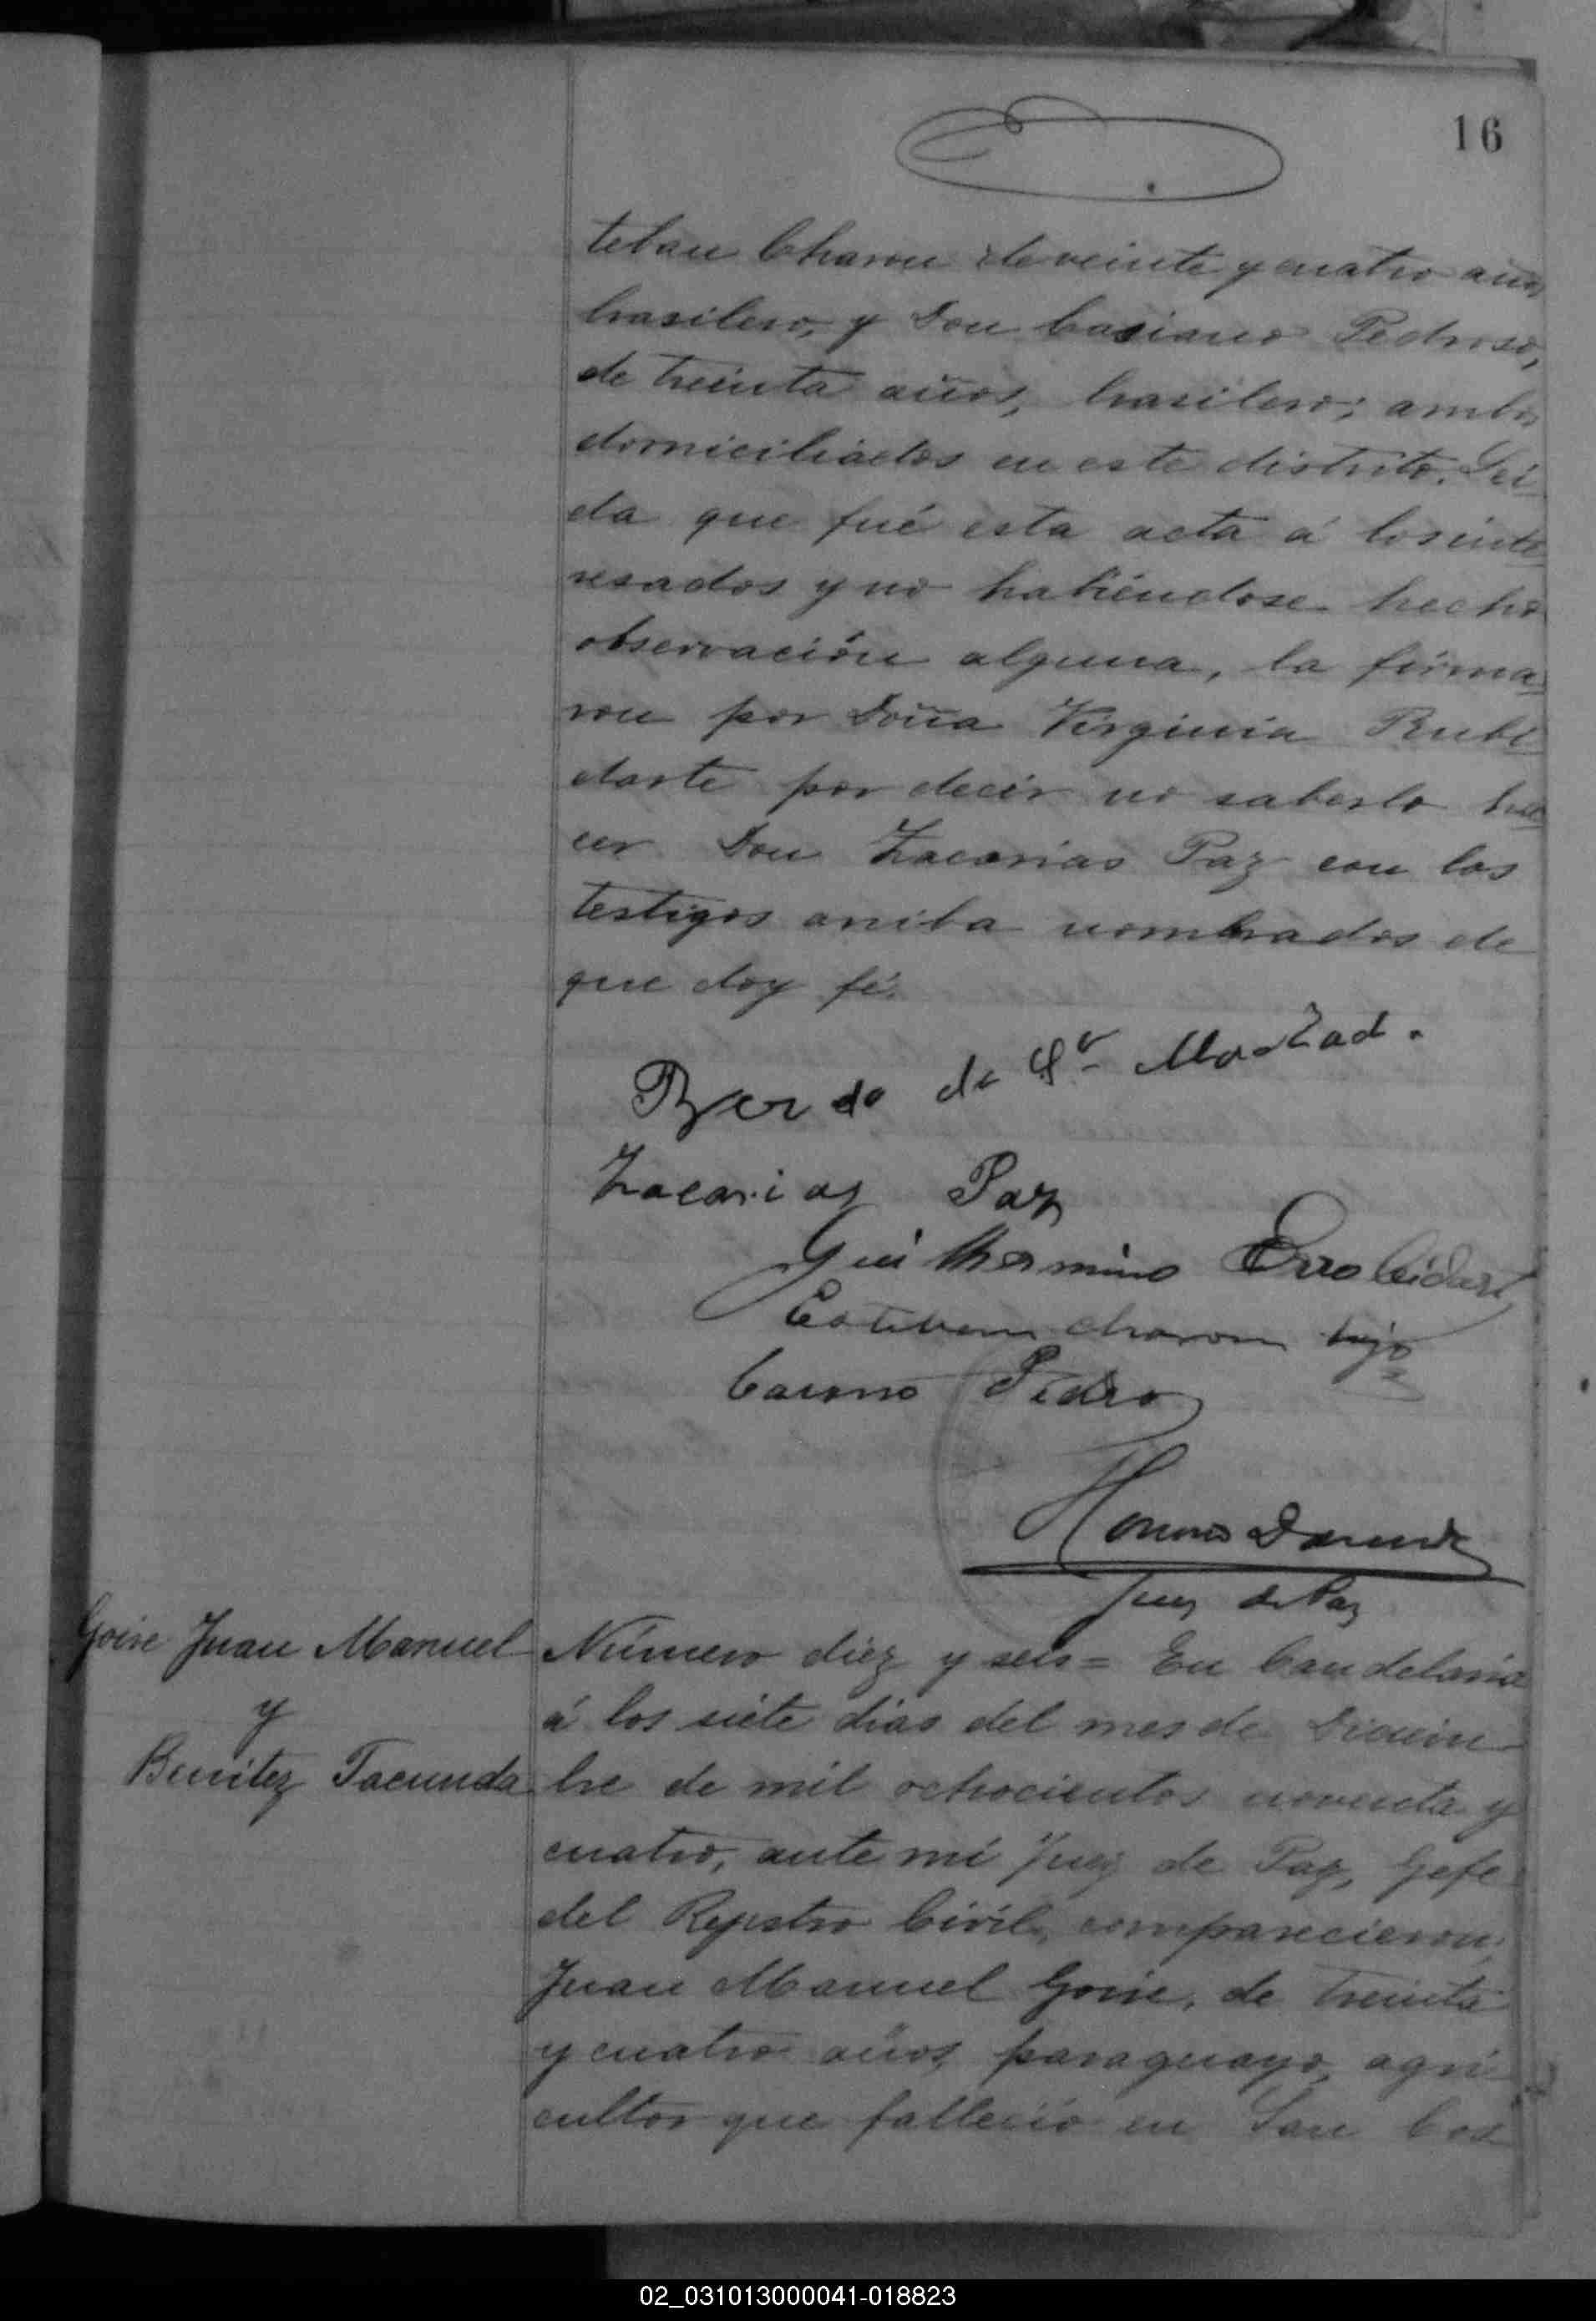 16
teban Charon de veinte y cuatro años
brasilero, y Don Casiano Pedroso,
de treinta años, brasilero; ambos
domiciliados en este distrito. Lei
da que fué esta acta á los inte
resados y no habiéndose hecho
observación alguna, la firma
ron por Doña Virginia Rubi
darte por decir no saberlo ha
cer Don Zacarias Paz con los
testigos arriba nombrados de
que doy fé.
de
Zacarias Paz
Guilhermino
Esteban Charon hijo
Pedro
Juez de Paz
Goire Juan Manuel
y
Benitez Facunda
Número diez y seis = En Candelaria
á los siete dias del mes de Diciem
bre de mil ochocientos noventa y
cuatro, ante mi Juez de Paz, Gefe
del Registro Civil, comparecieron,
Juan Manuel Goire, de treinta
y cuatro años, paraguayo, agri
cultor que fallecio en San Cos
02_031013000041-018823